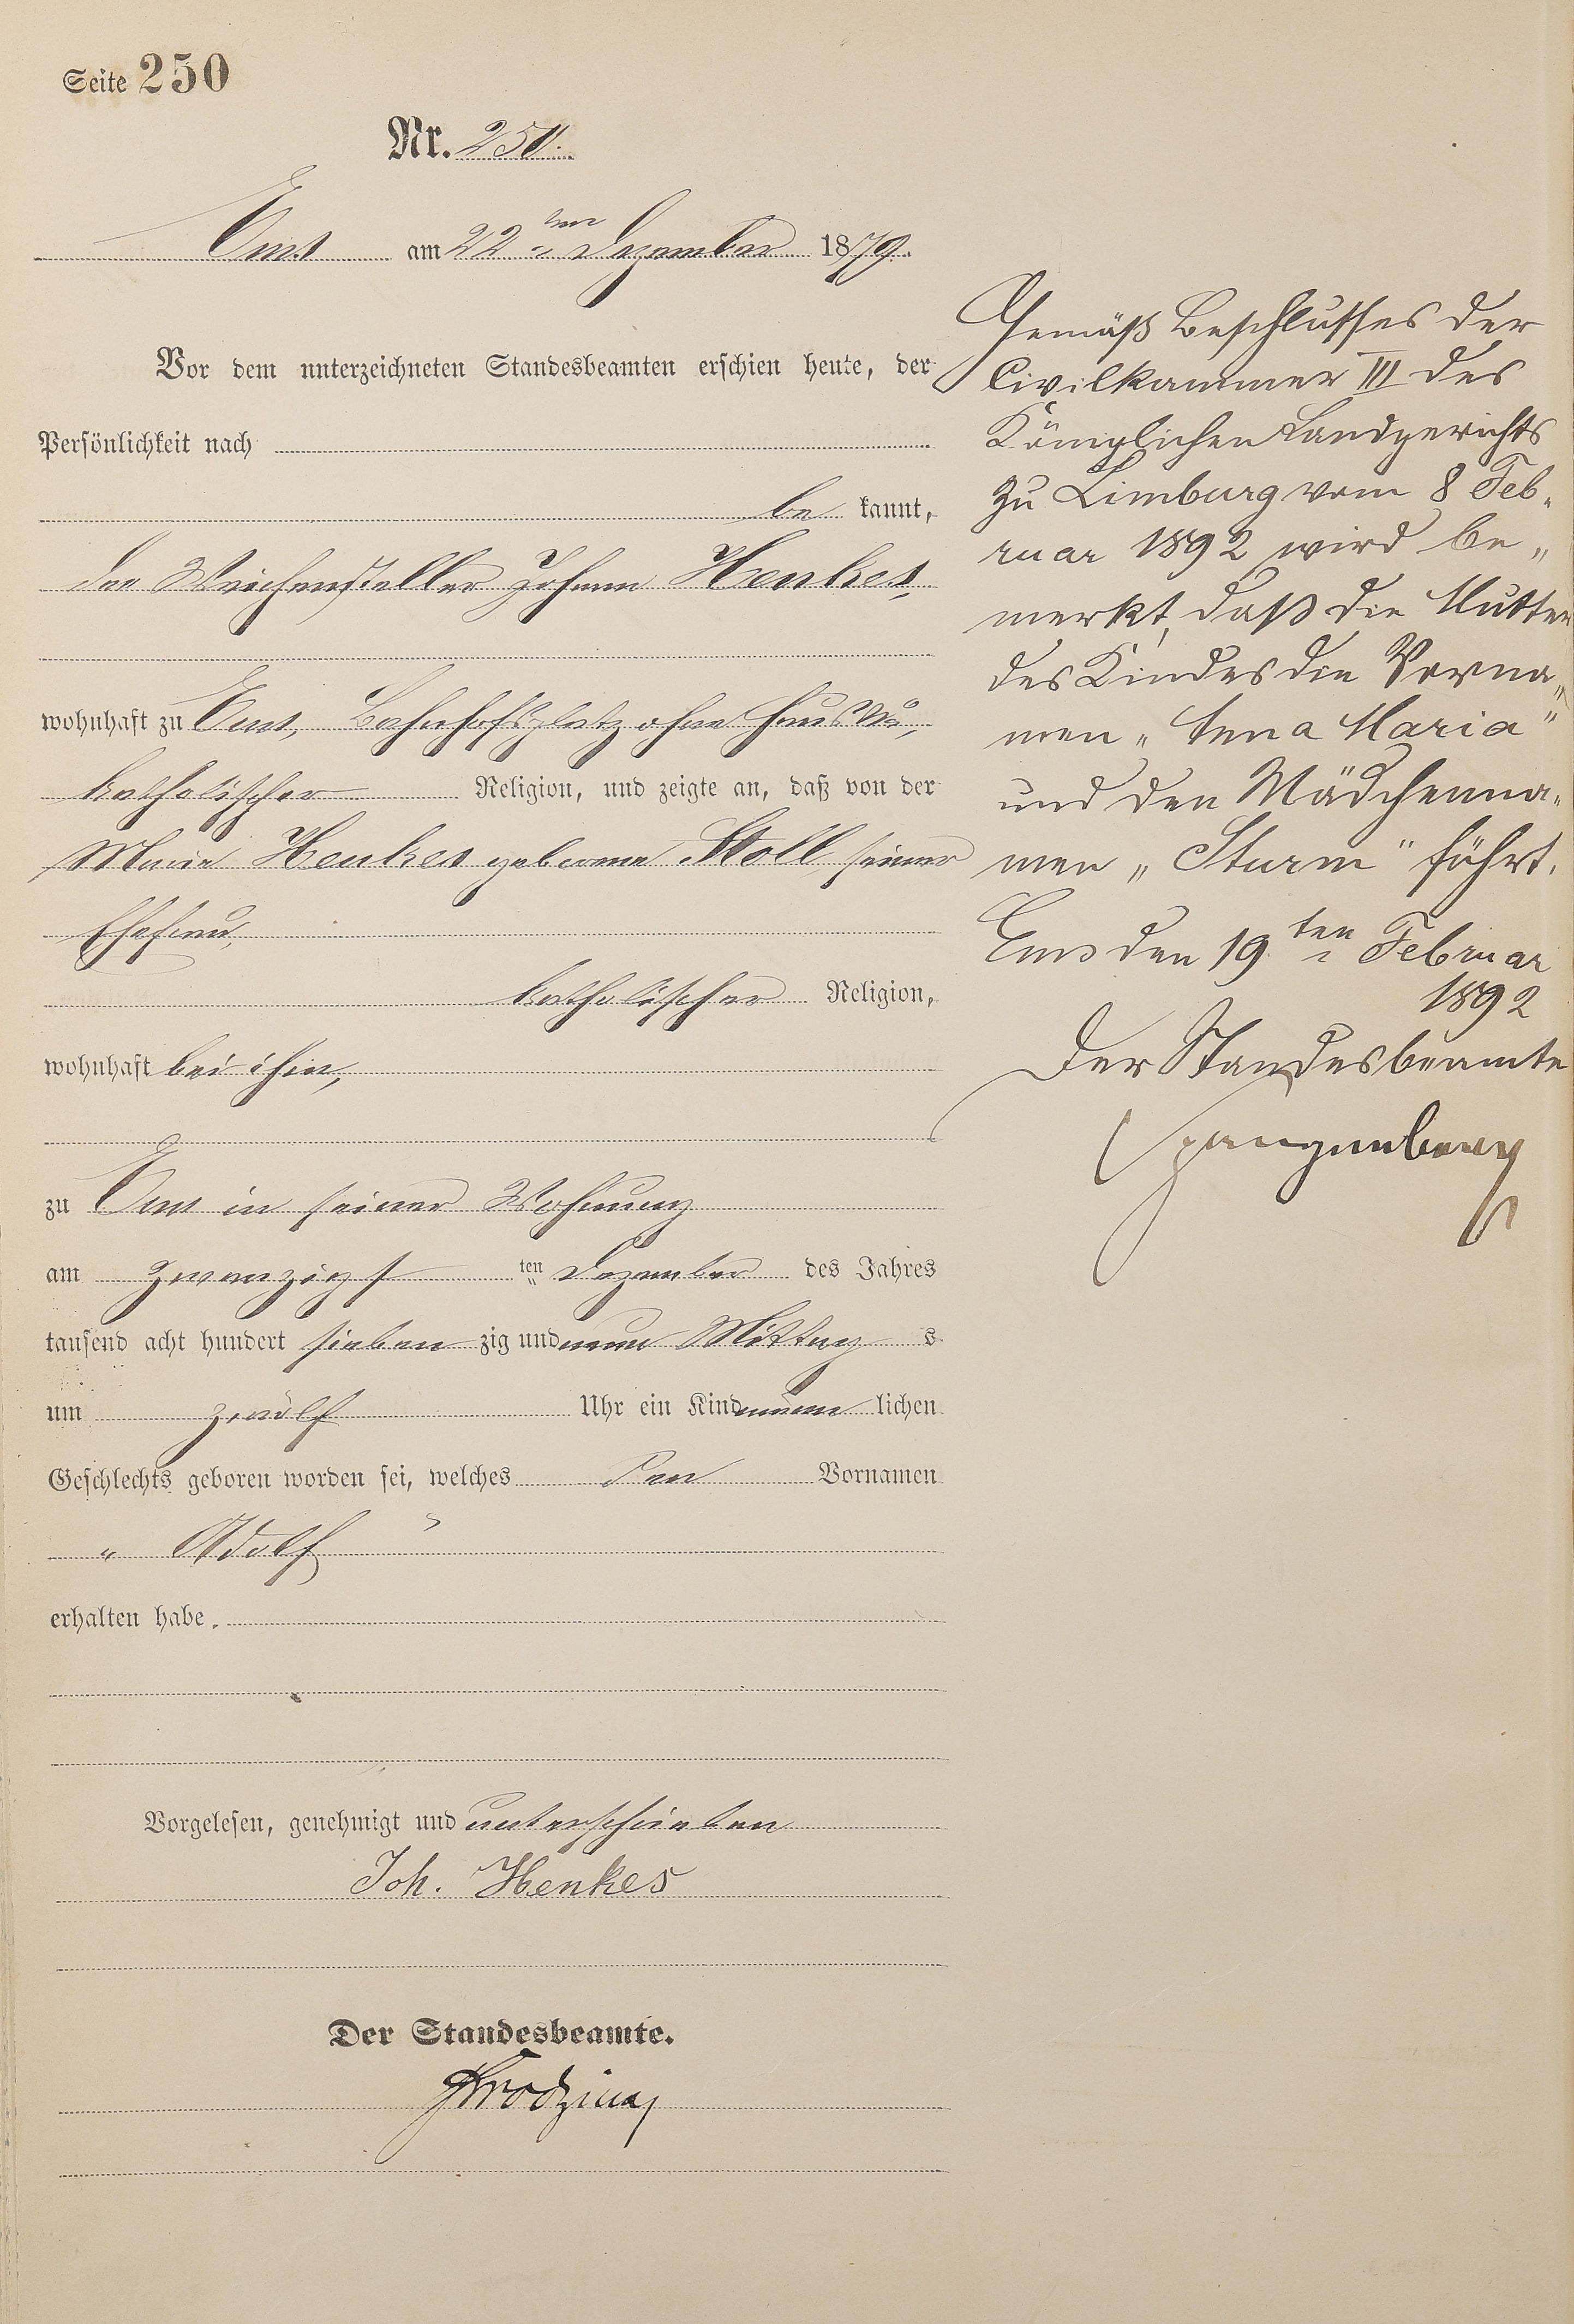 Seite 250
Nr. 250.
Ems am 22ten Dezember 1879.
Vor dem unterzeichneten Standesbeamten erschien heute, der
Persönlichkeit nach
be kannt,
der Weichensteller Johann Henkes,
wohnhaft zu Ems, Bahnhofsplatz ohne Haus No,
katholischer Religion, und zeigte an, daß von der
Marie Henkes geborene Stoll seiner
Ehefrau,
katholischer Religion,
wohnhaft bei ihm,
zu Ems in seiner Wohnung
am zwanzigsten Dezember des Jahres
tausend acht hundert sieben zig und neun Mittags
um zwölf Uhr ein Kind männlichen
Geschlechts geboren worden sei, welches den Vornamen
"Adolf"
erhalten habe.
Vorgelesen, genehmigt und unterschrieben
Joh. Henkes
Der Standesbeamte.
Gemäß Beschlusses der
Civilkammer III des
Königlichen Landgerichts
zu Limburg vom 8 Feb-
ruar 1892 wird be-
merkt, daß die Mutter
des Kindes die Vorna-
men „Anna Maria"
und den Mädchenna-
men „Sturm" führt.
Ems den 19ten Februar
1892
Der Standesbeamte
Spangenberg